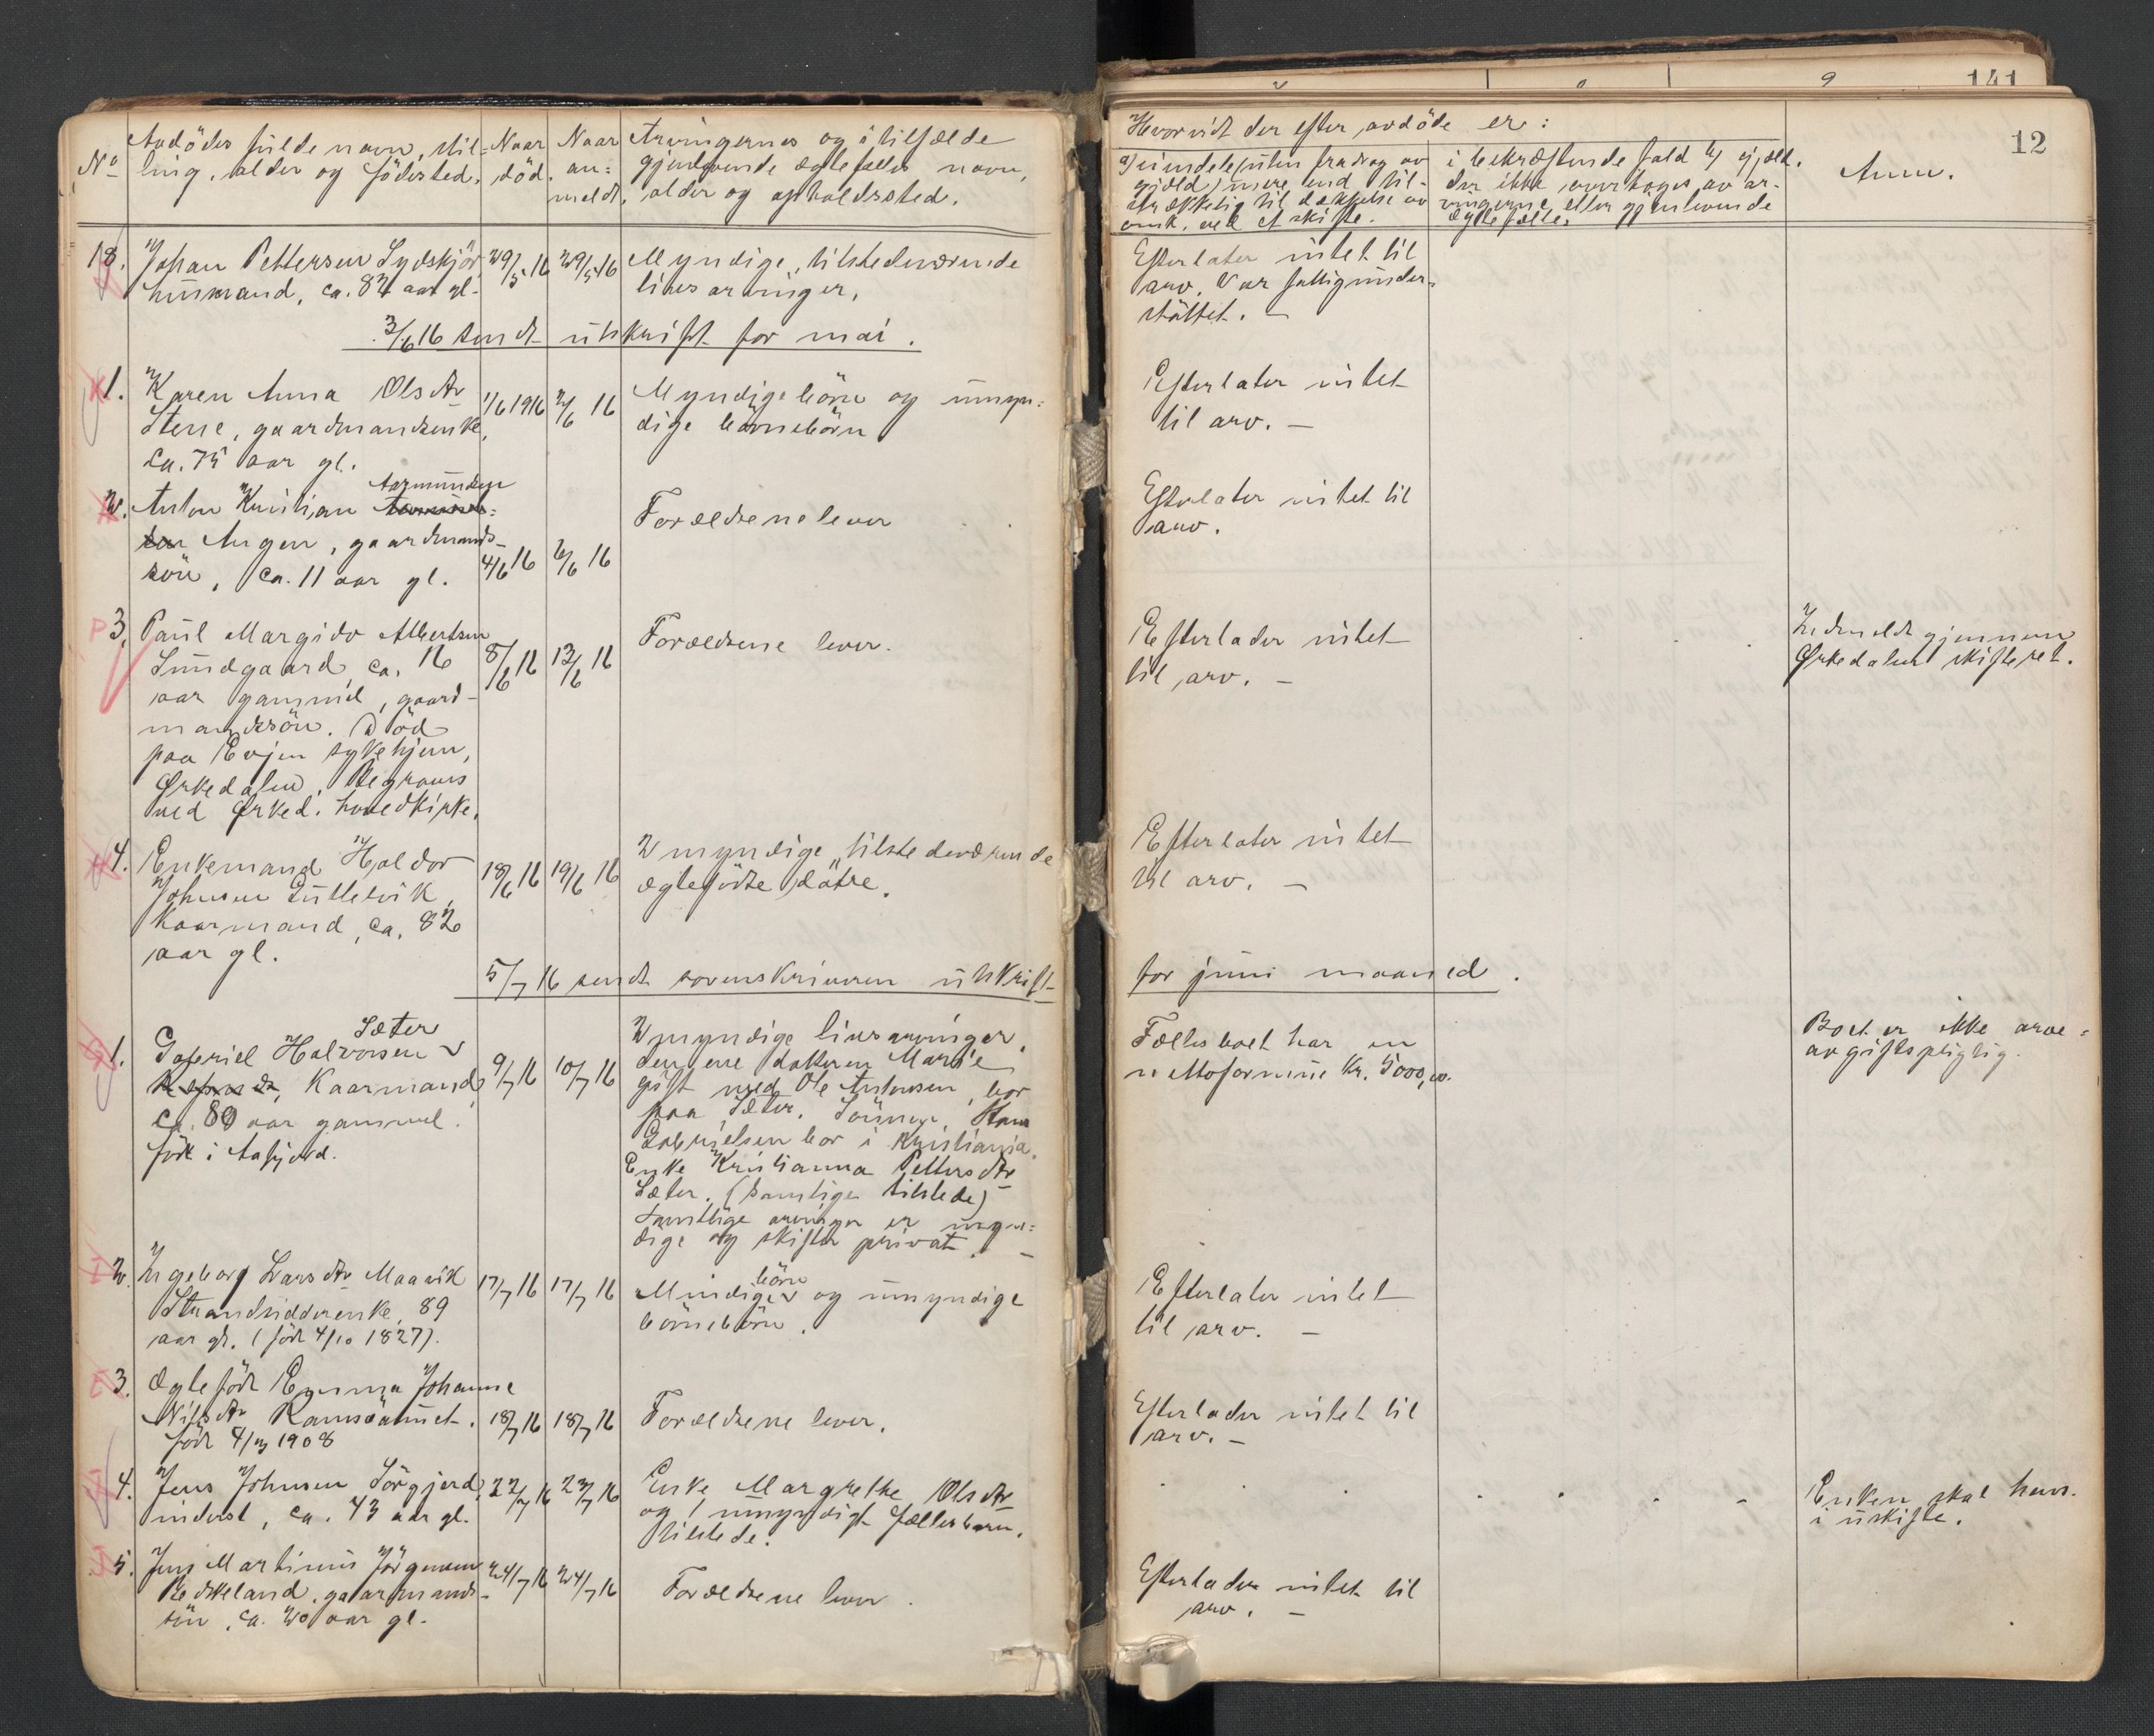 141
12
No
Avdödes fulde navn, stil-
ling, alder og födested.
Naar
död.
Naar
an=
meldt.
Arvingernes og i tilfælde
gjenlevende ægtefælles navn,
alder og opholdssted.
Hvorvidt der efter avdöde er:
a) eiendele (uten fradrag av
gjæld) mere end til-
strækkelig til dækkelse av
omk. ved et skifte.
i bekræftende fald b) gjæld.
der ikke overtages av ar-
vingerne eller gjenlevende
ægtefælle.
Anm.
18.
Johan Pettersen Sydskjör,
husmand, ca. 82 aar gl.
29/5 16
29/5 16
Myndige, tilstedeværende
livsarvinger.
Efterlater intet til
arv. Var fattigunder-
stöttet. –
3/6 16 sendt utskrift for mai.
1.
Karen Anna Olsdtr
Stene, gaardmandsenke,
ca. 75 aar gl.
1/6 1916
2/6 16
Myndige börn og umyn=
dige börnebörn
Efterlater intet
til arv. –
2.
Aarmundsen
Anton Kristian
Angen, gaardmands-
sön, ca. 11 aar gl.
4/6 16
6/6 16
Forældrene lever
Efterlater intet til
arv.
3.
Paul Margido Albertsen
Lundgaard, ca. 16
aar gammel, gaard-
mandssön. Död
paa Evjen sykehjem,
Ørkedalen. Begraves
ved Ørked. hovedkirke.
8/6 16
13/6 16
Forældrene lever.
Efterlader intet
til arv. –
Indmeldt gjennem
Ørkedalens skifteret.
4.
Enkemand Haldor
Johnsen Sulletvik,
Kaarmand, ca. 82
aar gl.
18/6 16
19/6 16
2 myndige, tilstedeværende
ægtefödte dötre.
Efterlater intet
til arv. –
5/7 16 sendt sorenskriveren utskrift
for juni maaned.
1.
Sæter
Gabriel Halvorsen
Kaarmand,
ca. 80 aar gammel.
född i Aafjord.
9/7 16
10/7 16
2 myndige livsarvinger,
den ene datteren Marie
gift med Ole Antonsen, bor
paa Sæter. Sönnen, Hans
Gabrielsen bor i Kristiania.
Enke Kristianna Pettersdtr
Sæter. (samtlige tilstede)
Samtlige arvinger er myn=
dige og skifter privat. –
Fællesboet har en
nettoformue Kr. 5000,00.
Boet er ikke arve=
avgiftspligtig.
2.
Ingeborg Larsdtr Maavik
Strandsidderenke, 89
aar gl. (född 4/10 1827).
17/7 16
17/7 16
börn
Mindige og umyndige
börnebörn.
Efterlater intet
til arv. –
3.
Ægtefödt Emma Johanne
Nilsdtr Ramsöaunet.
född 4/12 1908
18/7 16
18/7 16
Forældrene lever.
Efterlader intet til
arv. –
4.
Jens Johnsen Sörgjerd,
inderst, ca. 43 aar gl.
22/7 16
23/7 16
Enke Margrethe Olsdtr
og 1 umyndigt fællesbarn.
tilstede.
Enken skal hens.
i uskifte.
5.
Jens Martinus Jörgensen
Redskeland, gaardmands-
sön, ca. 20 aar gl.
24/7 16
24/7 16
Forældrene lever.
Efterlader intet til
arv. –